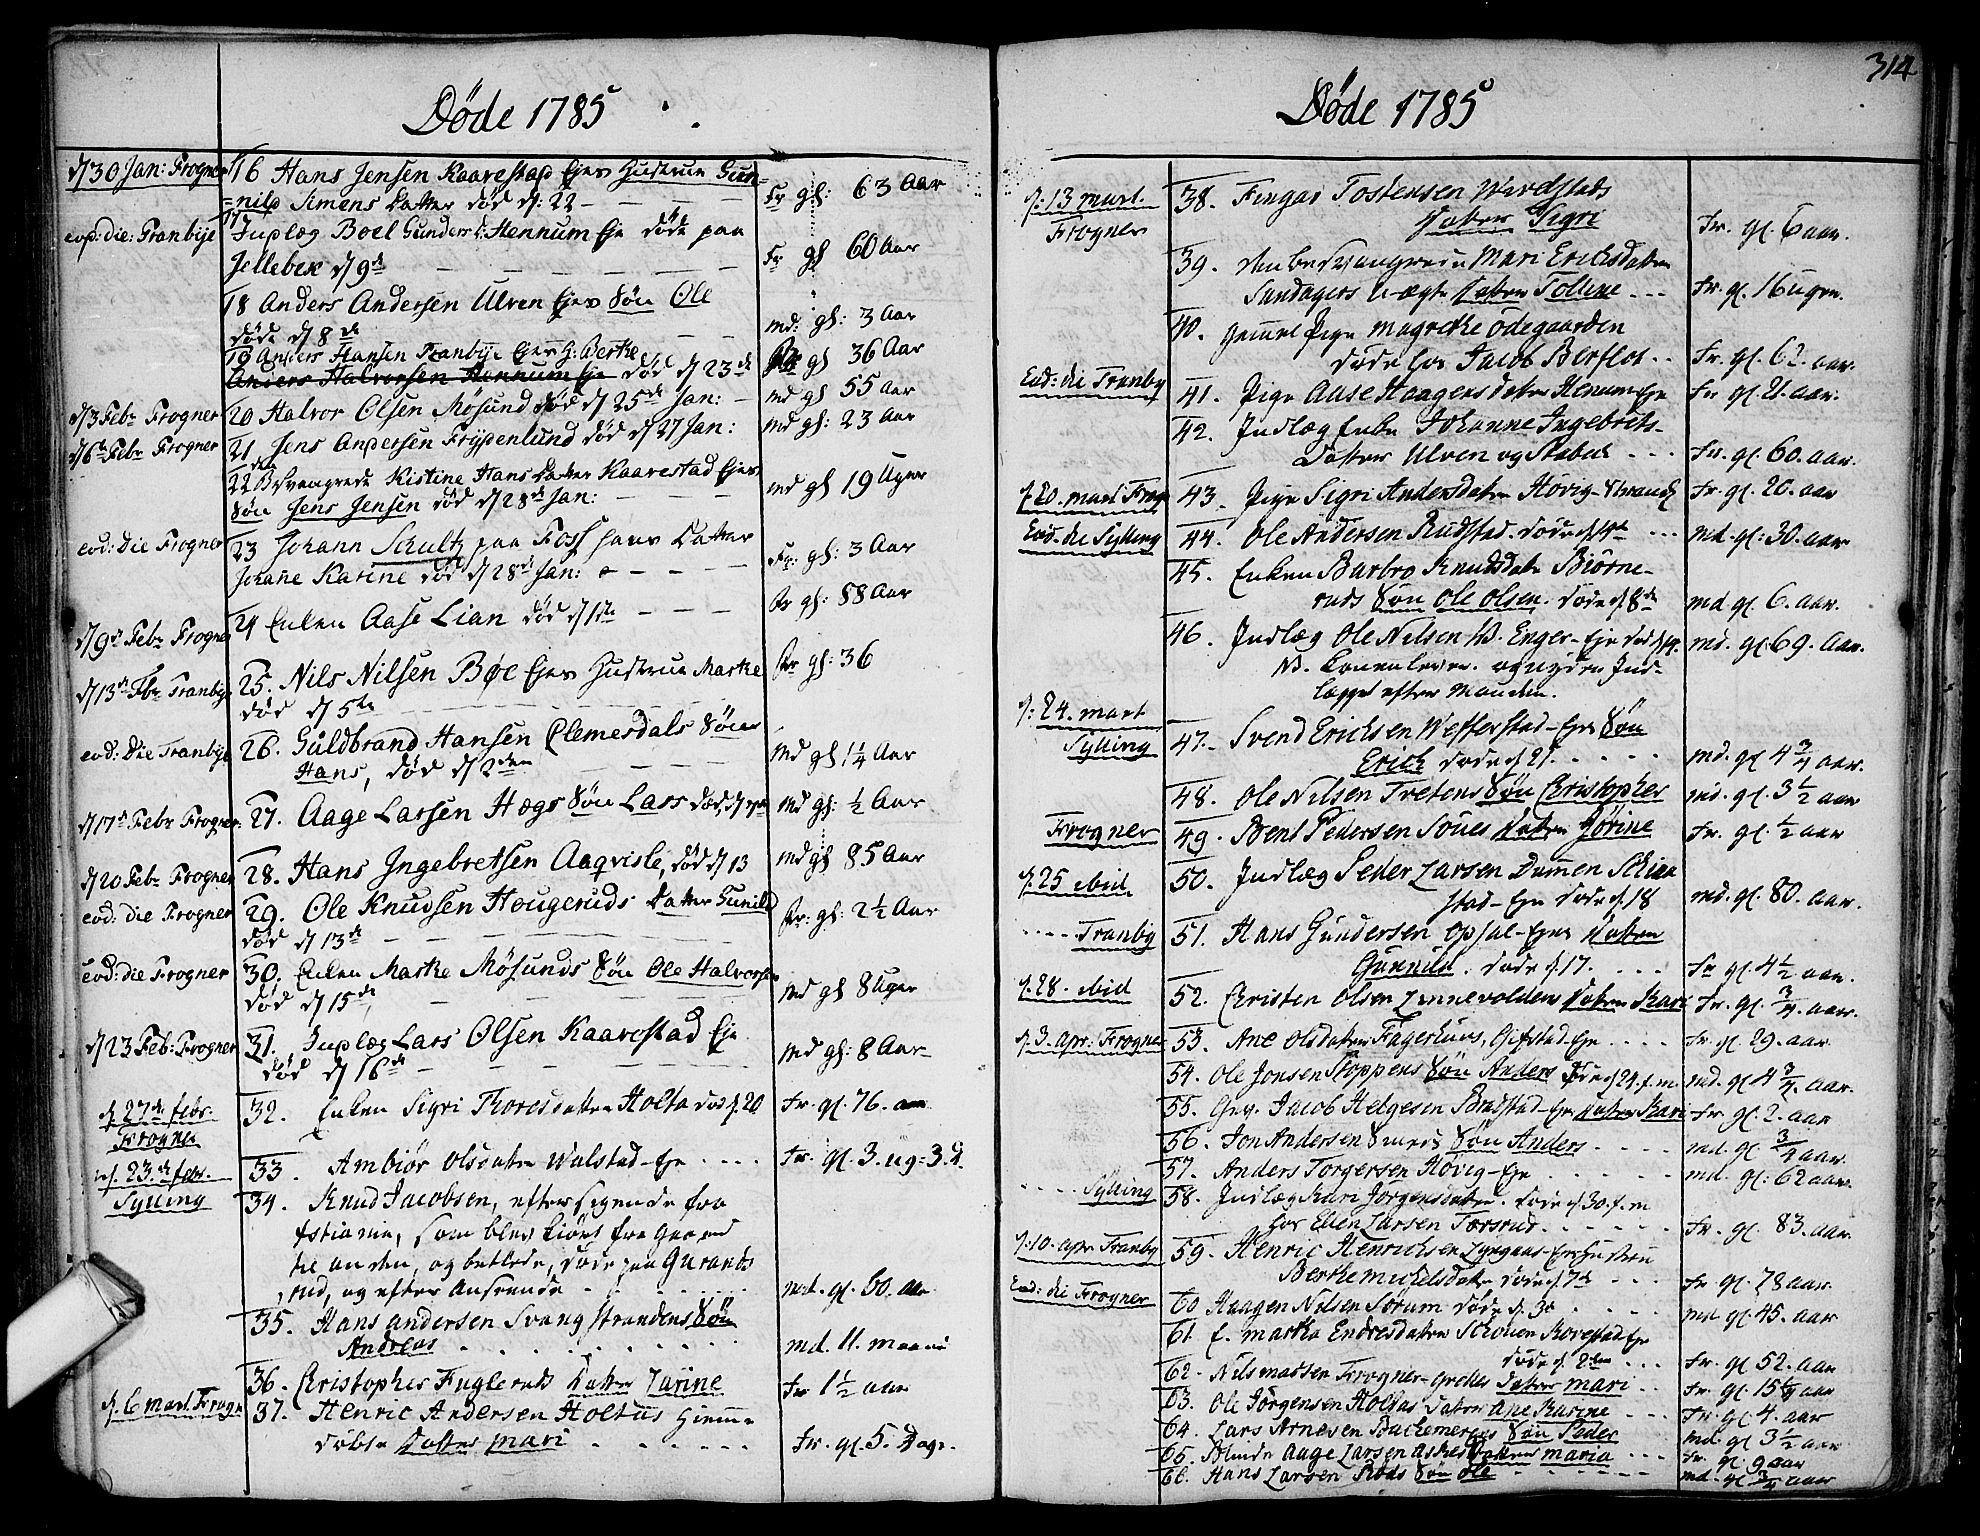 314
Døde 1785
d 30 Jan: Frogner 16 Hans Jensen Kaarestad Ejes Hustrue Gun=
=nild Simens Datter død d: 22 Fr gl: 63 Aar
eod: die: Tranbÿe 17 Indlæg Boel Gunders D: Hennum Eje døde paa
Jellebek d 9de Fr gl 60 Aar
18 Anders Andersen Ulven Ejes Søn Ole
døde d 8de md: gl: 3 Aar
19 Anders Hansen Tranbÿe Ejes H: Berthe
Anders Halvorsen Hennum Eje død d 23de gl 36 Aar
d 3 Febr Frogner 20 Halvor Olsen Møsund død d 25de Jan: md gl 55 Aar
d 6te Febr Frogner 21 Jens Andersen Frydenlund død d 27 Jan: md gl: 23 Aar
22 Besvangrede Kistine Hans Datter Kaarestad Ejes
Søn Jens Jensen død d 28de Jan: md gl 19 Uger
eod: Die Frogner 23 Johann Schultz paa Foss hans Datter
Johanne Karine død d 28de Jan: Fr: gl: 3 Aar
d 9de Febr Frogner 24 Enken Aase Lian død d 1ste Fr gl: 88 Aar
d 13de Febr Tranbÿe 25. Nils Nilsen Bøe Ejes Hustrue Marthe
død d 5te Fr gl: 36
eod: Die Tranbÿe 26. Guldbrand Hansen Clemesdals Søn
Hans, død d 2den Md gl 1 1/4 Aar
d 17de Febr Frogner 27. Aage Larsen Høgs Søn Lars død, d 7de Md gl: 1/2 Aar
d 20 Febr Frogner 28. Hans Ingebretsen Aaqvisle, død d 13 Md gl 85 Aar
eod: die Frogner 29. Ole Knudsen Hougeruds Datter Gunild
død d 13de Fr: gl: 2 1/2 Aar
eod: die Frogner 30. Enken Marthe Møsunds Søn Ole Halvorsen
død d 15de Md gl 8 Uger
d 23 Feb: Frogner 31. Indlæg Lars Olsen Kaarestad Eje
død d 16de Md gl: 8 Aar
d. 27de febr. Frogner 32. Enken Sigri Thoresdatter Holta død d. 20 Fr. gl. 76. aar
d. 23.de febr. Sylling 33 Ambiør Olsdatter Walstad-Eje Fr. gl. 3. ug: 3. d.
34. Knud Jacobsen, efter sigende fra
Xstiania, som blev kiørt fra Gaard
til anden, og betlede, døde paa Gurands
rud, og efter Anseende md. gl. 60. aar
35. Hans Andersen Svangstrandens Søn
Andreas md. 11. maan:
36. Christopher Fuglerud Datter Karine Fr 1 1/2 aar
d. 6 mart. Frogn 37. Henric Andersen Holtius Hiemme
døbte Datter Mari Fr. gl. 5. Dage
Døde 1785
d: 13 mart. Frogner 38. Fingar Tostensen Wivelstads
Datter Sigri Fr. gl. 6 aar.
39. den besvangrede Mari Erichsdatter
Sundagers uægte Datter Tolline Fr. gl. 16 ugr.
40. gemel Pige Magrethe Ødegaarden
døde hos Jacob Berflot Fr. gl. 62. aar.
Eod: die Tranby 41. Pige Aase Haagensdatter Henum-Eje Fr gl. 21. aar.
42. Indlæg Enke Johanne Ingebrits-
Datter Ulven og Stabek Fr. gl. 60. aar.
d. 20. mart Frogn 43. Pige Sigri Andersdatter Høvig-Strand Fr. gl. 20. aar
Eod. die Sylling 44. Ole Andersen Rudstad. døde d. 14de md. gl. 30. aar
45. Enken Barbro Knudsdatter Biørne-
ruds Søn Ole Olsen. døde d. 8de md gl. 6. aar.
46. Indlæg Ole Nilsen W. Enger-Eje død d. 14. md. gl. 69. Aar.
N. Conen lever. og nyder Ind-
lægget efter Manden.
d: 24. mart Sylling 47. Svend Erichsen Wefferstad-Ejes Søn
Erich døde d. 21. md. gl 4 3/4 aar.
48. Ole Nilsen Tretons Søn Christopher md. gl. 3 1/2 aar
Frogner 49. Bent Pedersen Soues Datter Jørine Fr. gl 1/2 aar
d. 25 ibid. 50. Indlæg Peder Larsen Dammen Schien
stad-Eje døde d. 18 md. gl. 80. aar.
Tranby 51. Hans Gundersen Opsal-Ejes Datter
Gunnild. døde d. 17. Fr gl. 4 1/2 aar.
d. 28. ibid 52. Christen Olsen Linnevolden Datter Kari Fr. gl. 3/4 aar.
d. 3. apr: Frogner 53. Ane Olsdatter Fagerhuus, Gifstad-Eje Fr. gl. 29. aar
54. Ole Jonsen Stoppens Søn Anders døde d. 24. f. m md. gl 4 3/4. aar.
55. Gey. Jacob Helgesen Brastad-Eje Datter Kari Fr. gl. 2. aar
56. Jon Andersen Smeds Søn Anders md. gl 3/4 aar.
57. Anders Torgersen Høvig-Eje md. gl: 62 aar.
Sylling 58. Indlæg Kari Jørgensdatter. døde d. 30. f. m
hos Eben Larsen Torsrud Fr. gl. 83. aar.
d. 10. apr. Tranby 59. Henric Henrichsen Lyngaas-Ejes Hustru
Berthe Michelsdatter døde d. 7de Fr gl. 78 aar.
Eod: die Frogner 60 Haagen Nilsen Sørum døde d. 30 md gl. 45. aar
61. E. Martha Endresdatter Schouen Kovestad Eje
døde d. 2den Fr. gl 52. aar
62. Nils Madsen Frogner-Ejes Datter Mari Fr. gl 15 aar
63. Ole Jørgensen Holtas Datter Ane Karine Fr. gl. 4. aar
64. Lars Arnesen Bachemerens Søn Peder md. gl 3 1/2 aar
65. Blinde Aage Larsen Askes Datter Maria Fr. gl. 9 aar
66. Hans Larsen Røds Søn Ole md. gl 3/4 aar